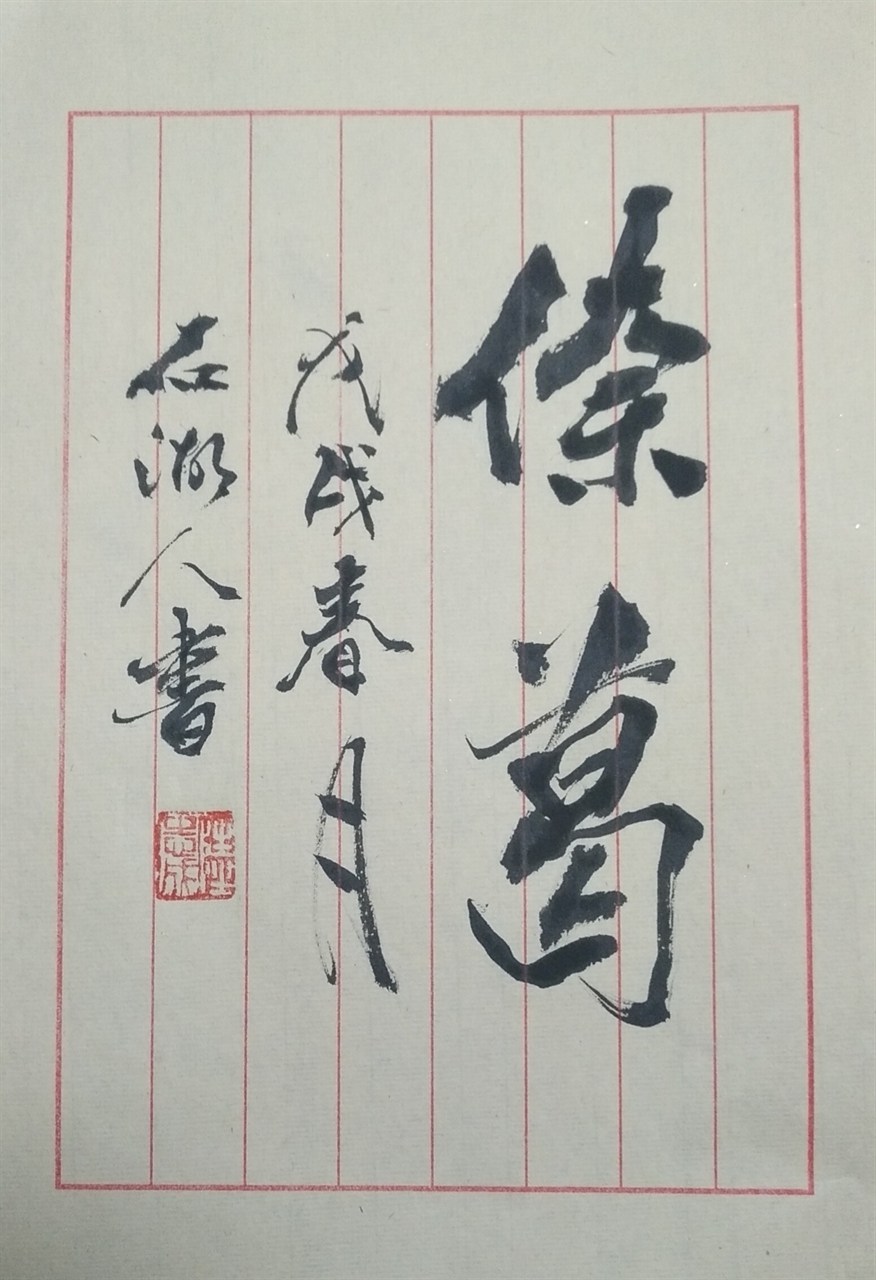 條葛
戊戌春月
石湖人書